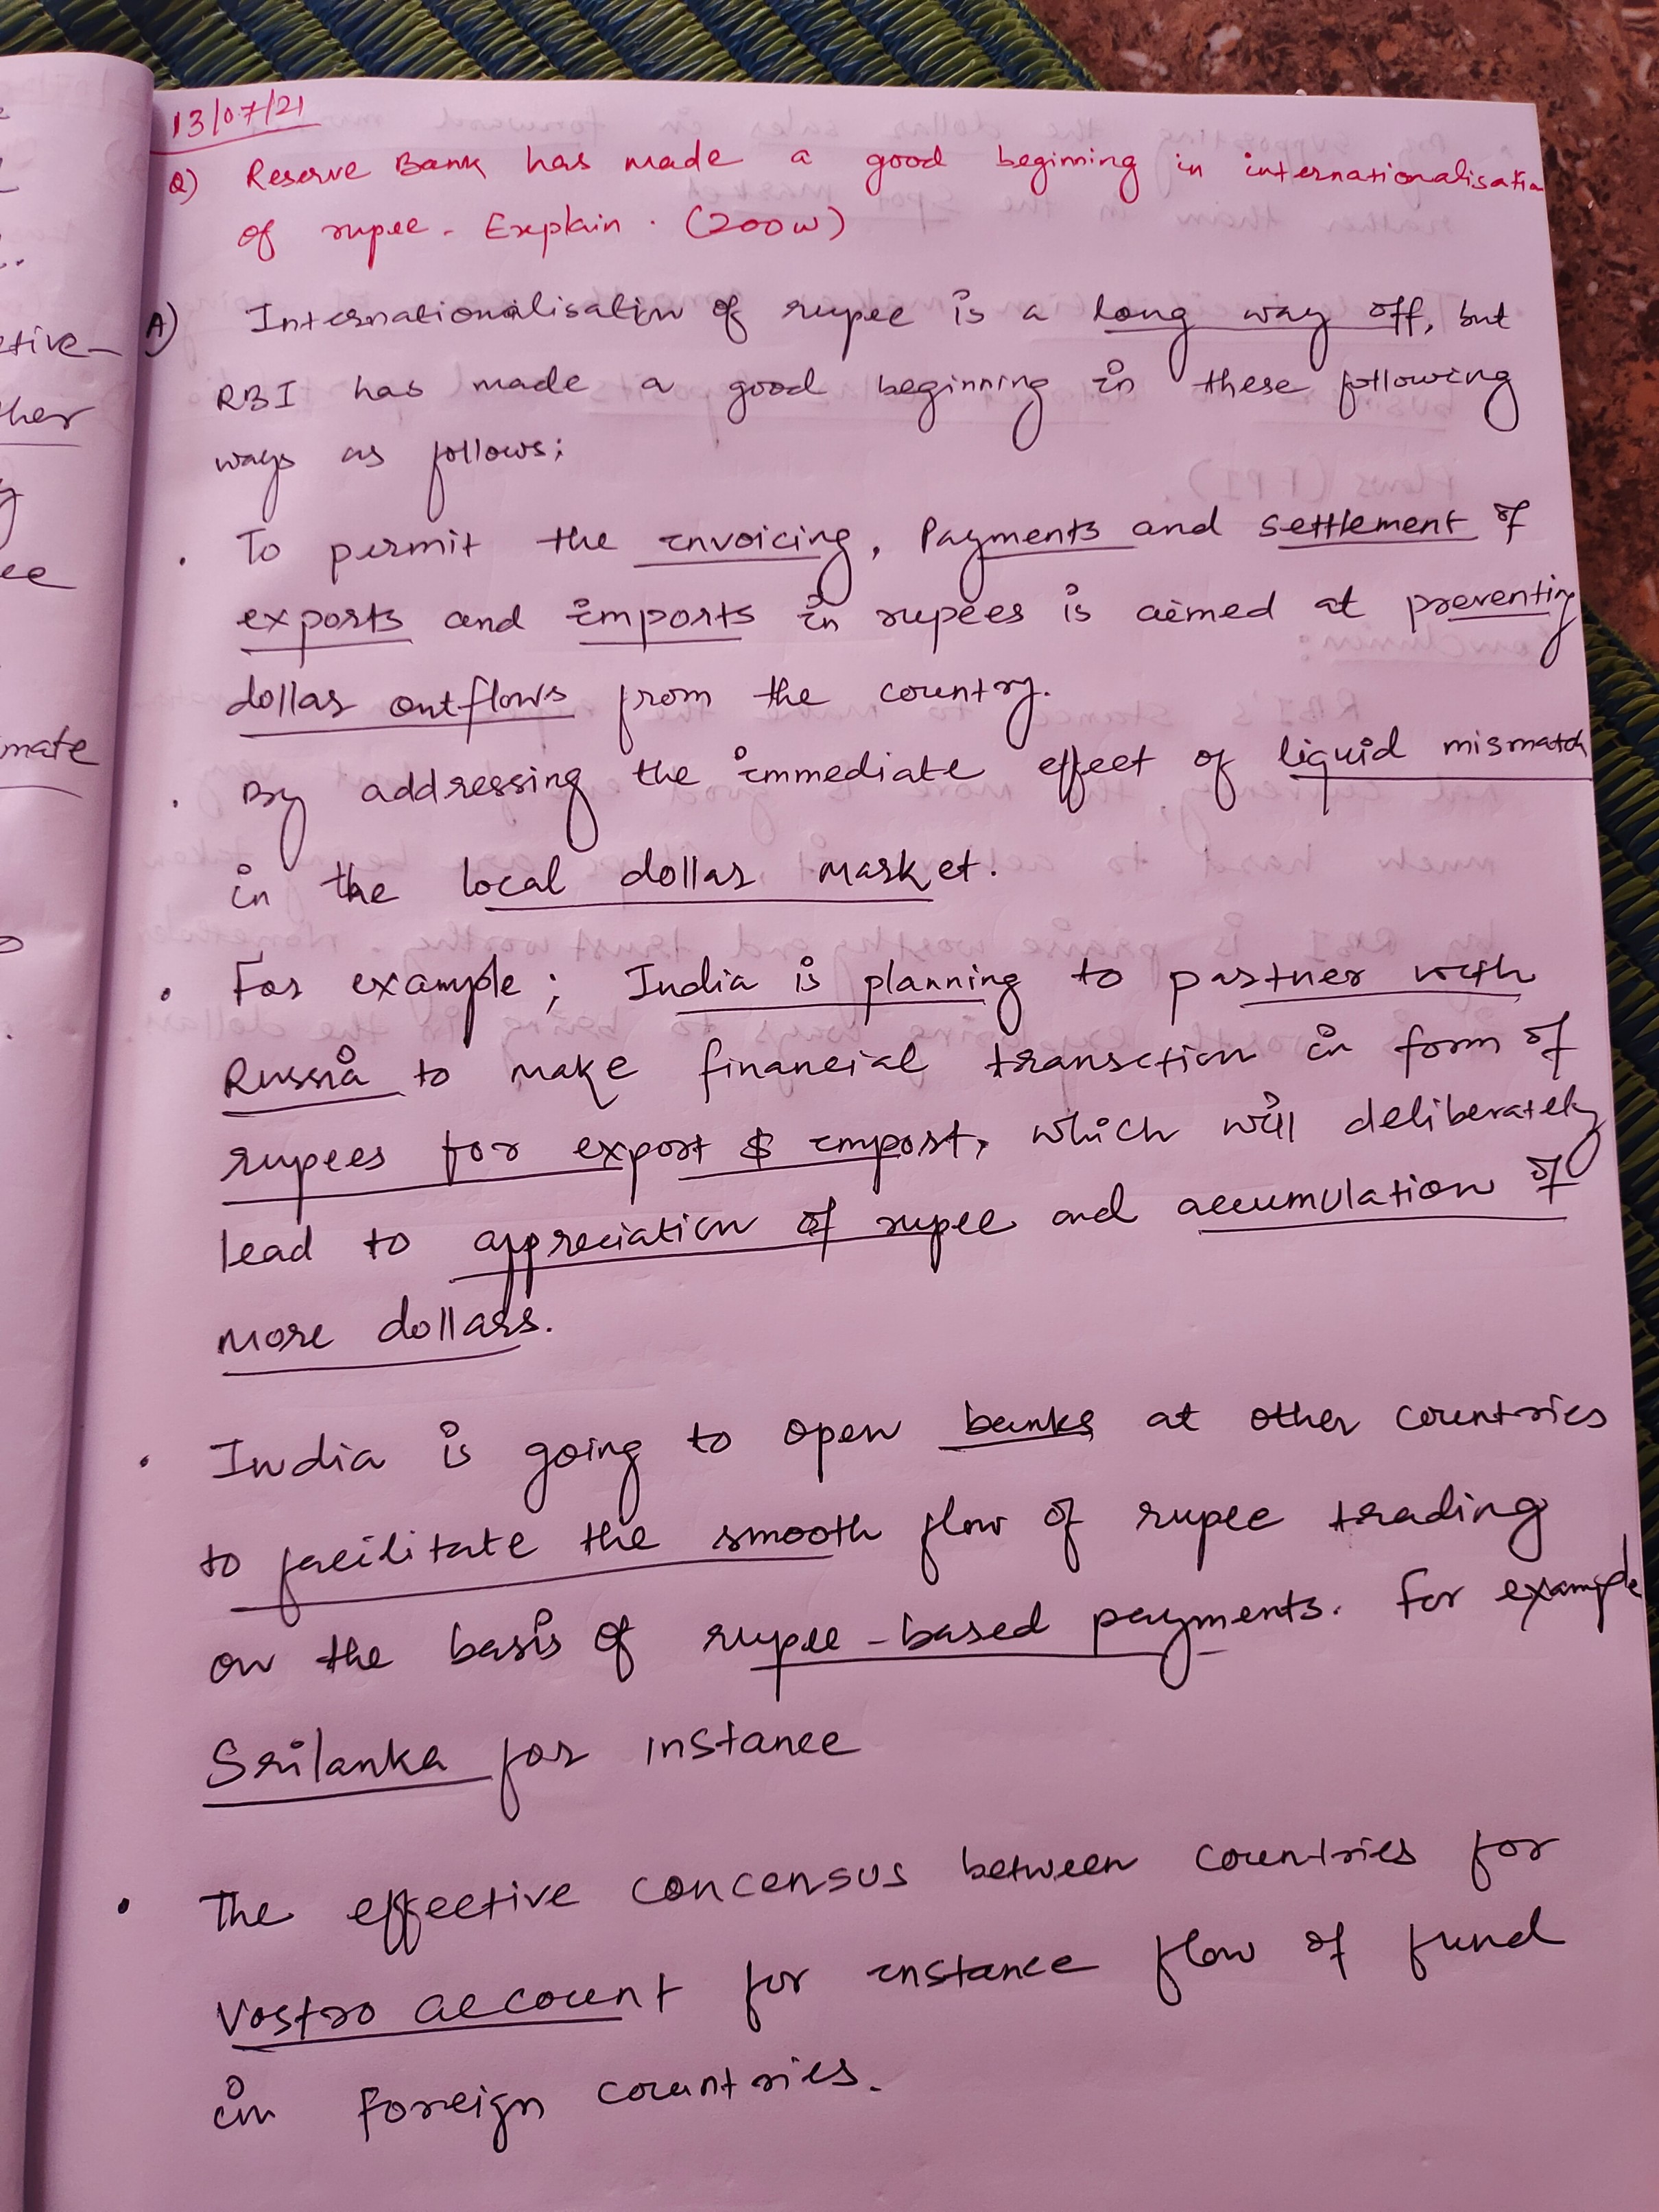 13/07/21
Q) Reserve Bank has made a good beginning in internationalisation
of rupee. Explain. (200w)
A) Internationalisation of rupee is a long way off, but
RBI has made a good beginning in these following
ways as follows;
. To permit the invoicing, Payments and settlement of
exports and imports in rupees is aimed at preventing
dollar outflows from the country.
. By addressing the immediate effect of liquid mismatch
in the local dollar market.
. For example; India is planning to partner with
Russia to make financial transction in form of
rupees for export & import, which will deliberately
lead to appreciation of rupee and accumulation of
more dollars.
. India is going to open banks at other countries
to facilitate the smooth flow of rupee trading
on the basis of rupee-based payments. For example
Srilanka for instance
. The effective concensus between countries for
Vostro account for instance flow of fund
in foreign countries.
ctive-
ther
ee
mate